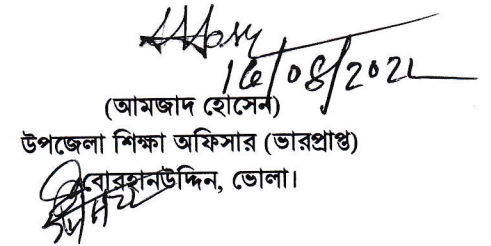 16/08/2022
(আমজাদ হোসেন)
উপজেলা শিক্ষা অফিসার (ভারপ্রাপ্ত)
বোরহানউদ্দিন, ভোলা।